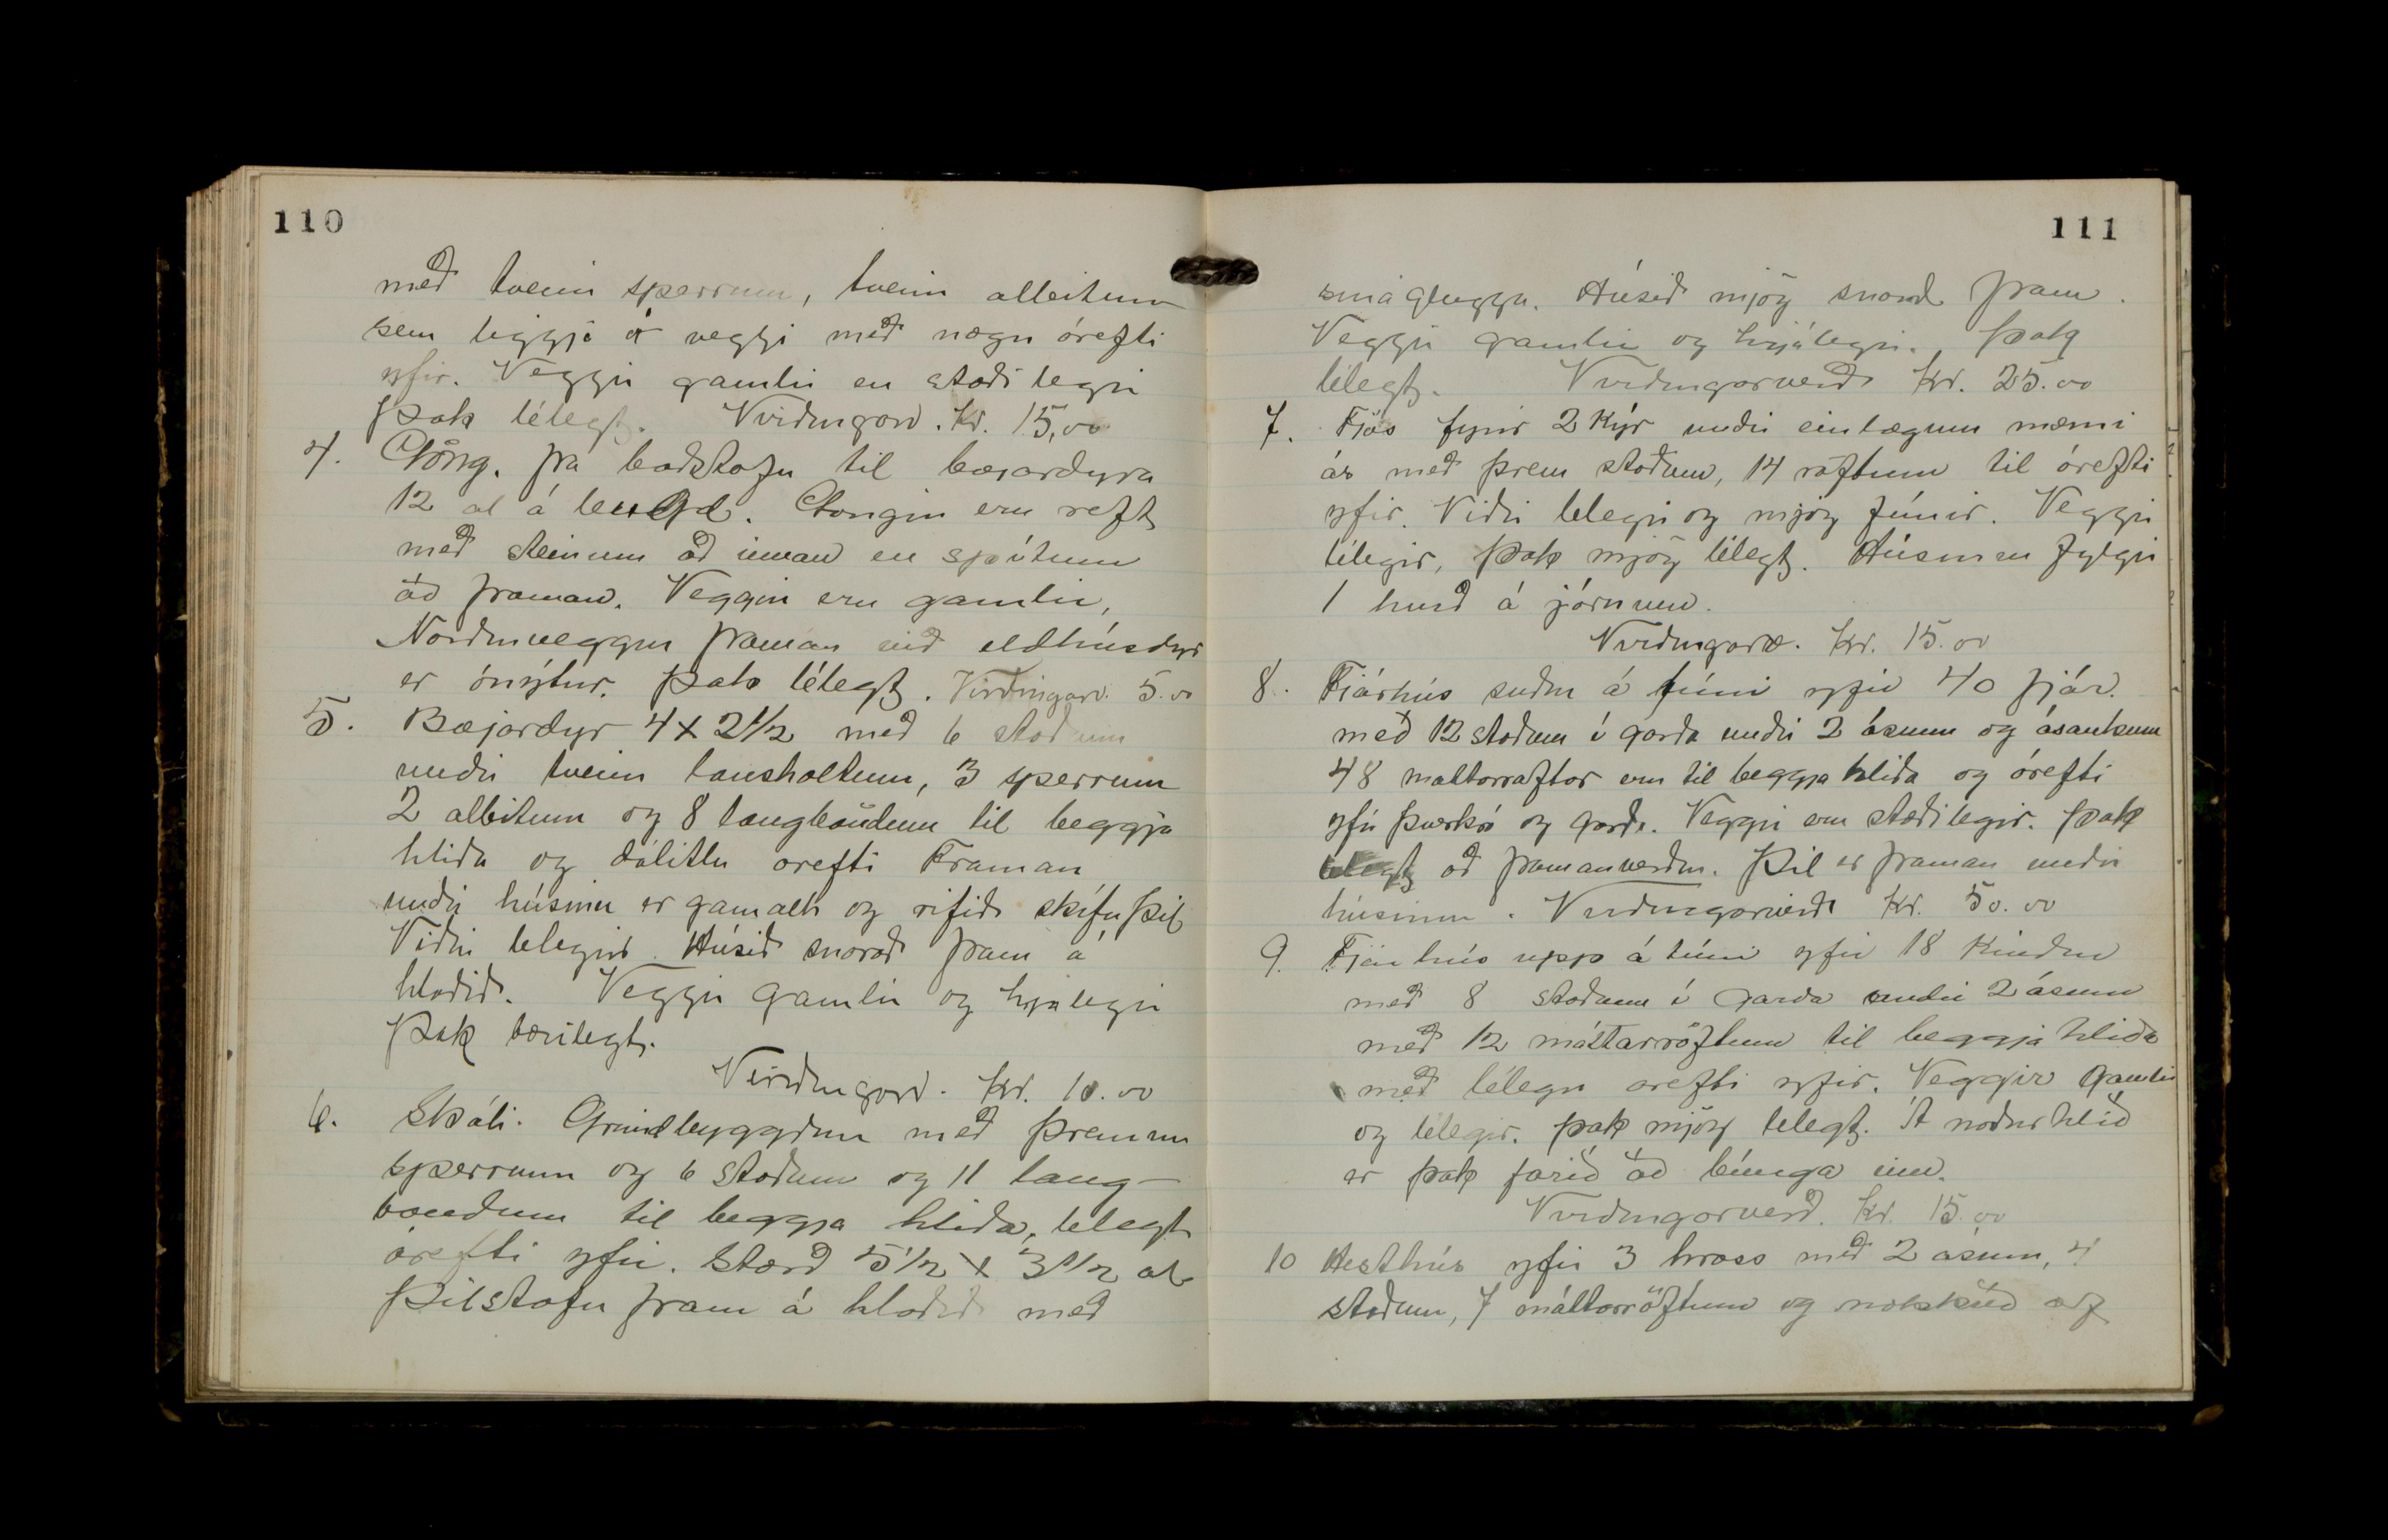 110
með tveim sperrum, tveim allbitum
sem liggja á veggi með nægu árefti
yfir. Veggir gamlir en stæðilegir
Þak lélegt. Virðingarv. Kr. 15,00
4. Göng. frá baðstofu til bæjardyra
12 al á lengd. Göngin eru reft
með steinum að innan en spítum
að framan. Veggir eru gamlir,
Norðurveggur framan við eldhúsdyr
er ónýtur. Þak lélegt. Virðingarv. 5.00
5. Bæjardyr 4 x 2 1/2 með 6 stoðum
undir tveim lausholtum, 3 sperrum
2 allbitum og 8 langböndum til beggja
hliða og dálitlu árefti Framan
undir húsinu er gamalt og rifið skífu þil
Viðir lélegir. Húsið snarað fram á
hlaðið. Veggir gamlir og hrjálegir
Þak bærilegt.
Virðingarv. Kr. 10.00
6. Skáli. Grindbyggður með þremur
sperrum og 6 stoðum og 11 lang-
böndum til beggja hliða, lélegt
árefti yfir. Stærð 5 1/2 x 3 1/2 al
Þilstafn fram á hlaðið með
111
smáglugga. Húsið mjög snarað fram.
Veggir gamlir og hrjálegir. Þak
lélegt. Virðingarverð Kr. 25.00
7. Fjós fyrir 2 Kýr undir einlægum mæni
ás með þrem stoðum, 14 röftum til árefti
yfir. Viðir lélegir og mjög fúnir. Veggir
lélegir, Þak mjög lélegt. Húsinu fylgir
1 hurð á járnum.
Virðingarv. Kr. 15.00
8. Fjárhús suður á túni yfir 40 fjár.
með 12 stoðum í garða undir 2 ásum og ásaukum
48 máttarraftar eru til beggja hliða og árefti
yfir þverkró og garða. Veggir eru stæðilegir. Þak
lélegt að framanverðu. Þil er framan undir
húsinu. Virðingarverð Kr. 50.00
9. Fjárhús upp á túni yfir 18 Kindur
með 8 stoðum í garða undir 2 ásum
með 12 máttarröftum til beggja hliða
með lélegu árefti yfir. Veggir gamlir
og lélegir. Þak mjög lélegt. Á norðurhlið
er þak farið að bunga inn.
Virðingarverð. Kr. 15.00
10 Hesthús yfir 3 hross með 2 ásum, 4
stoðum, 7 máttarröftum og nokkuð af